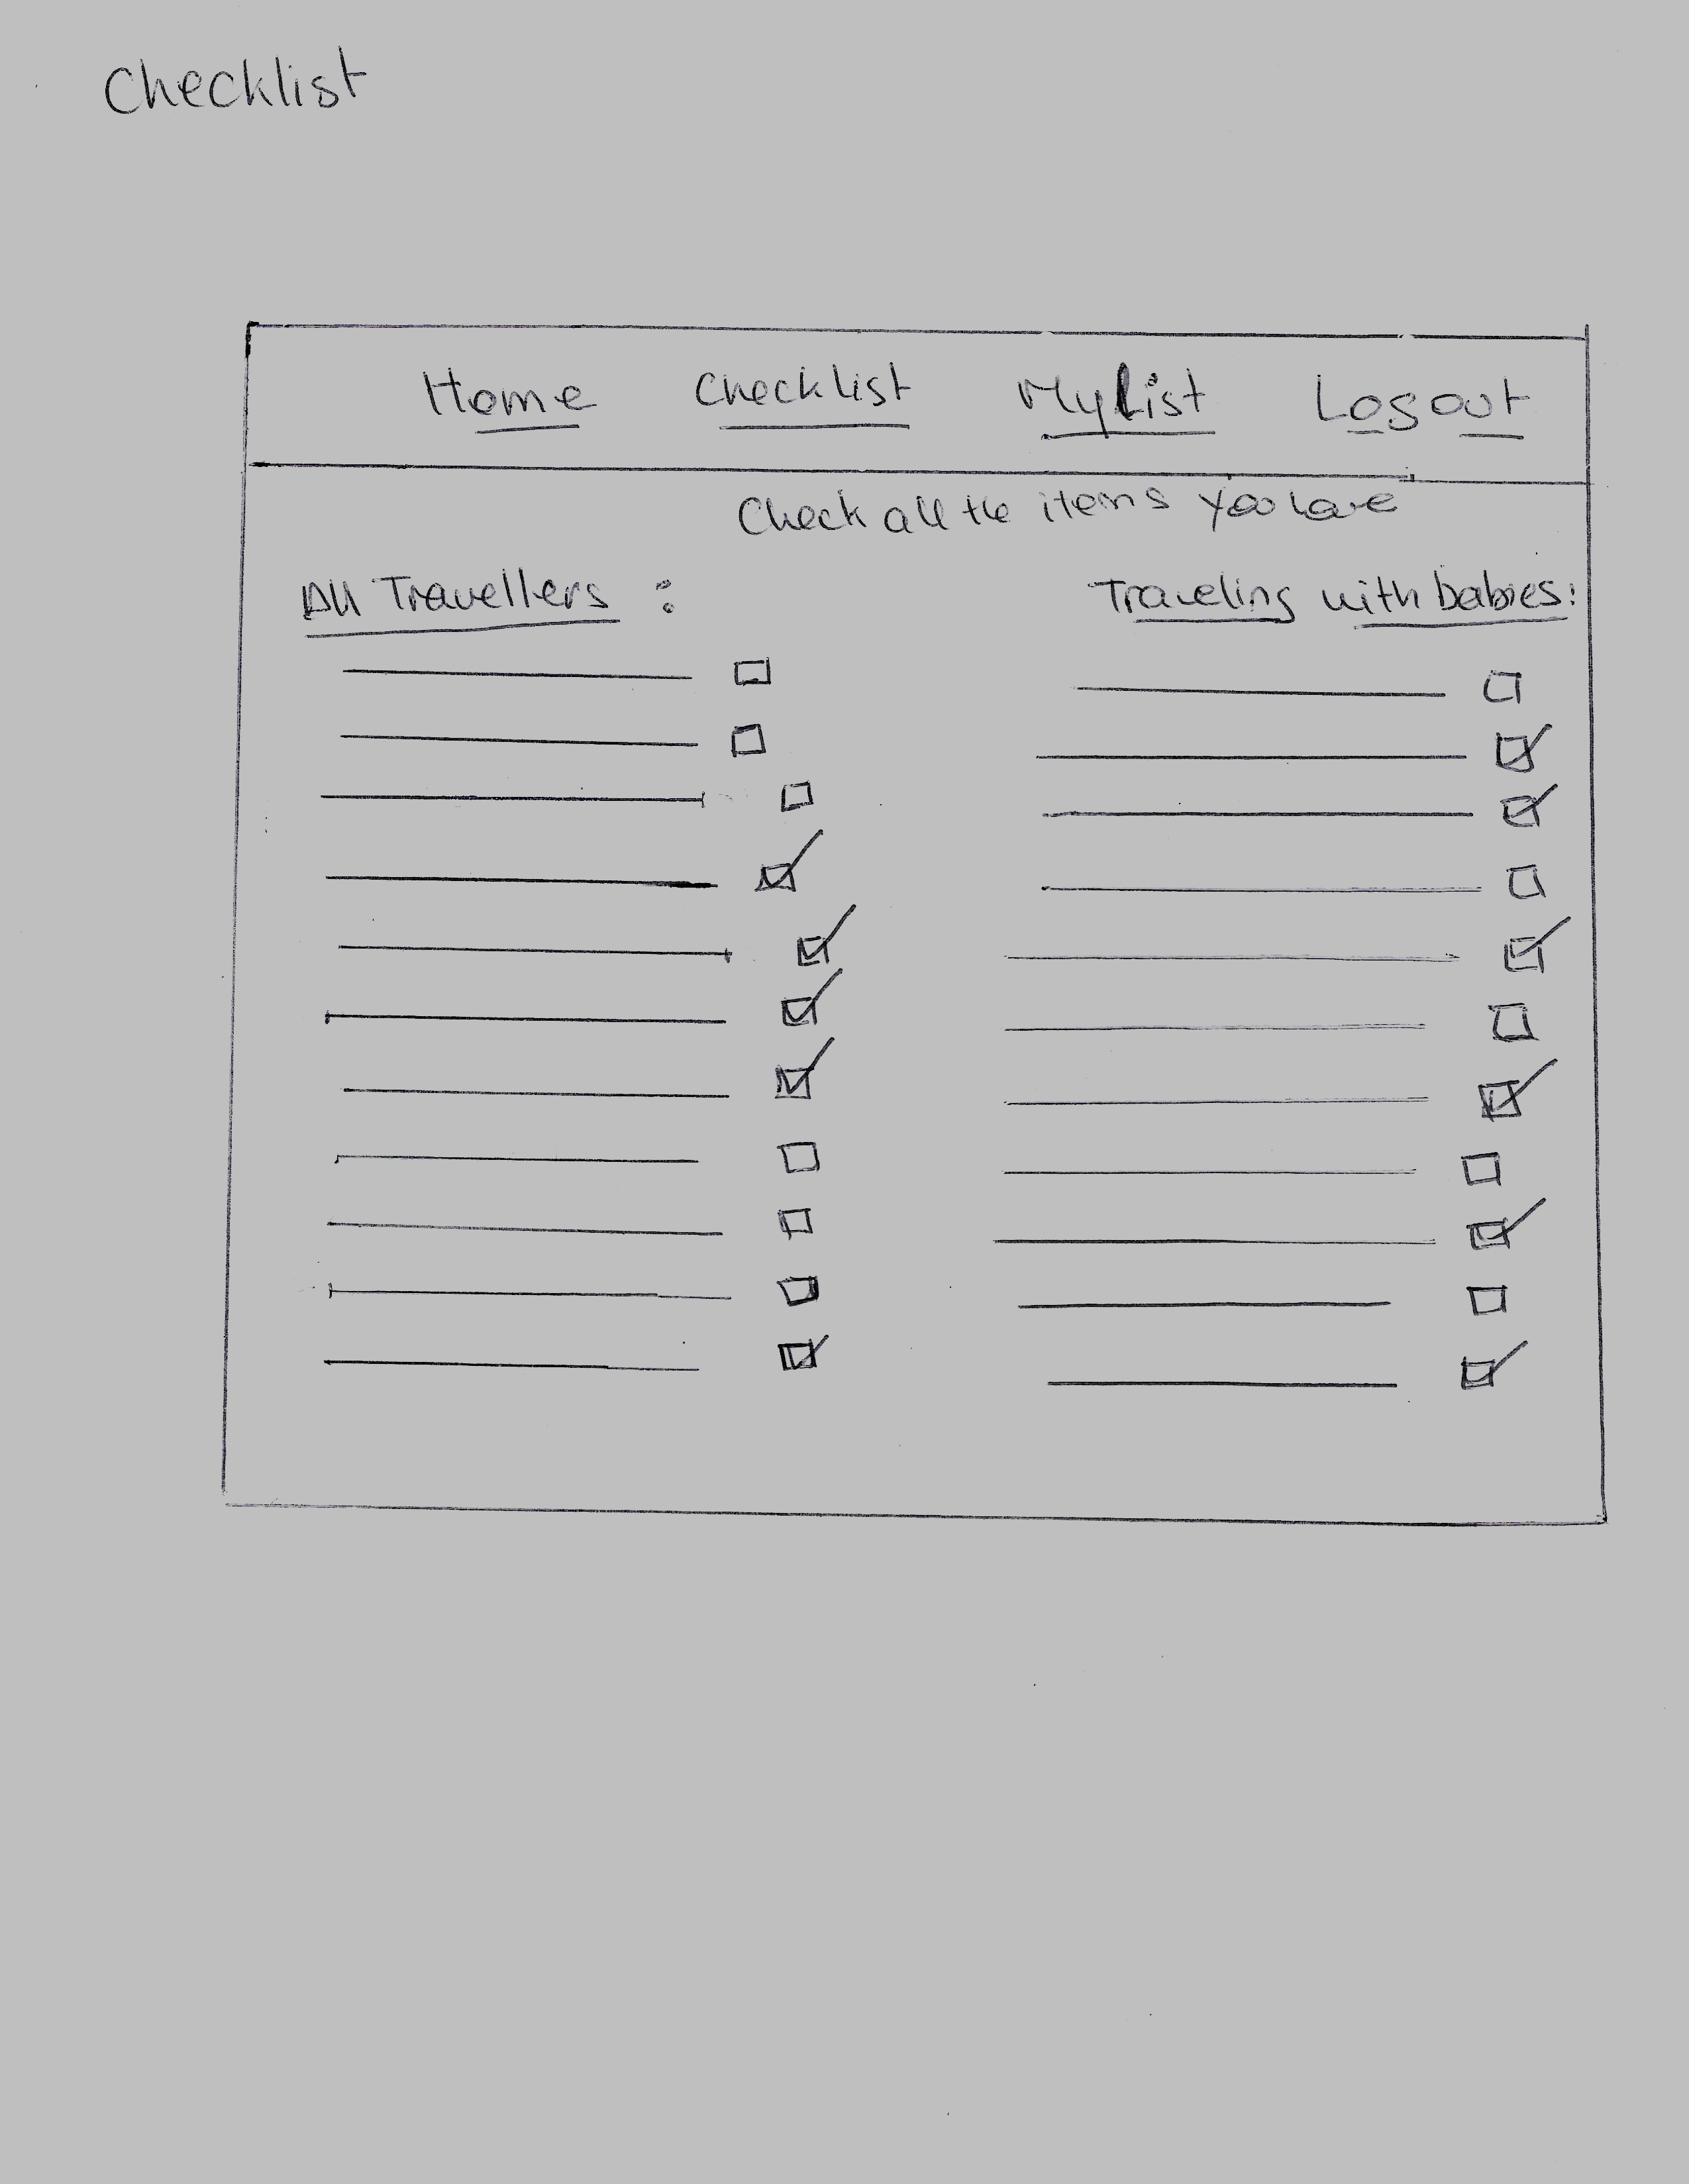 Checklist
Home Checklist MyList Logout
Check all the items you have
All Travellers :
Traveling with babies: